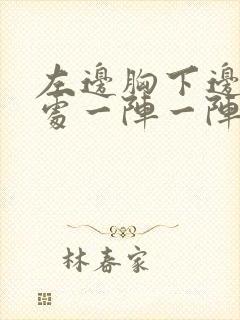 左邊胸下邊
處一陣一陣
林春家